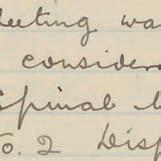 leeting wa
considera
Spinal
To. 2 Disp